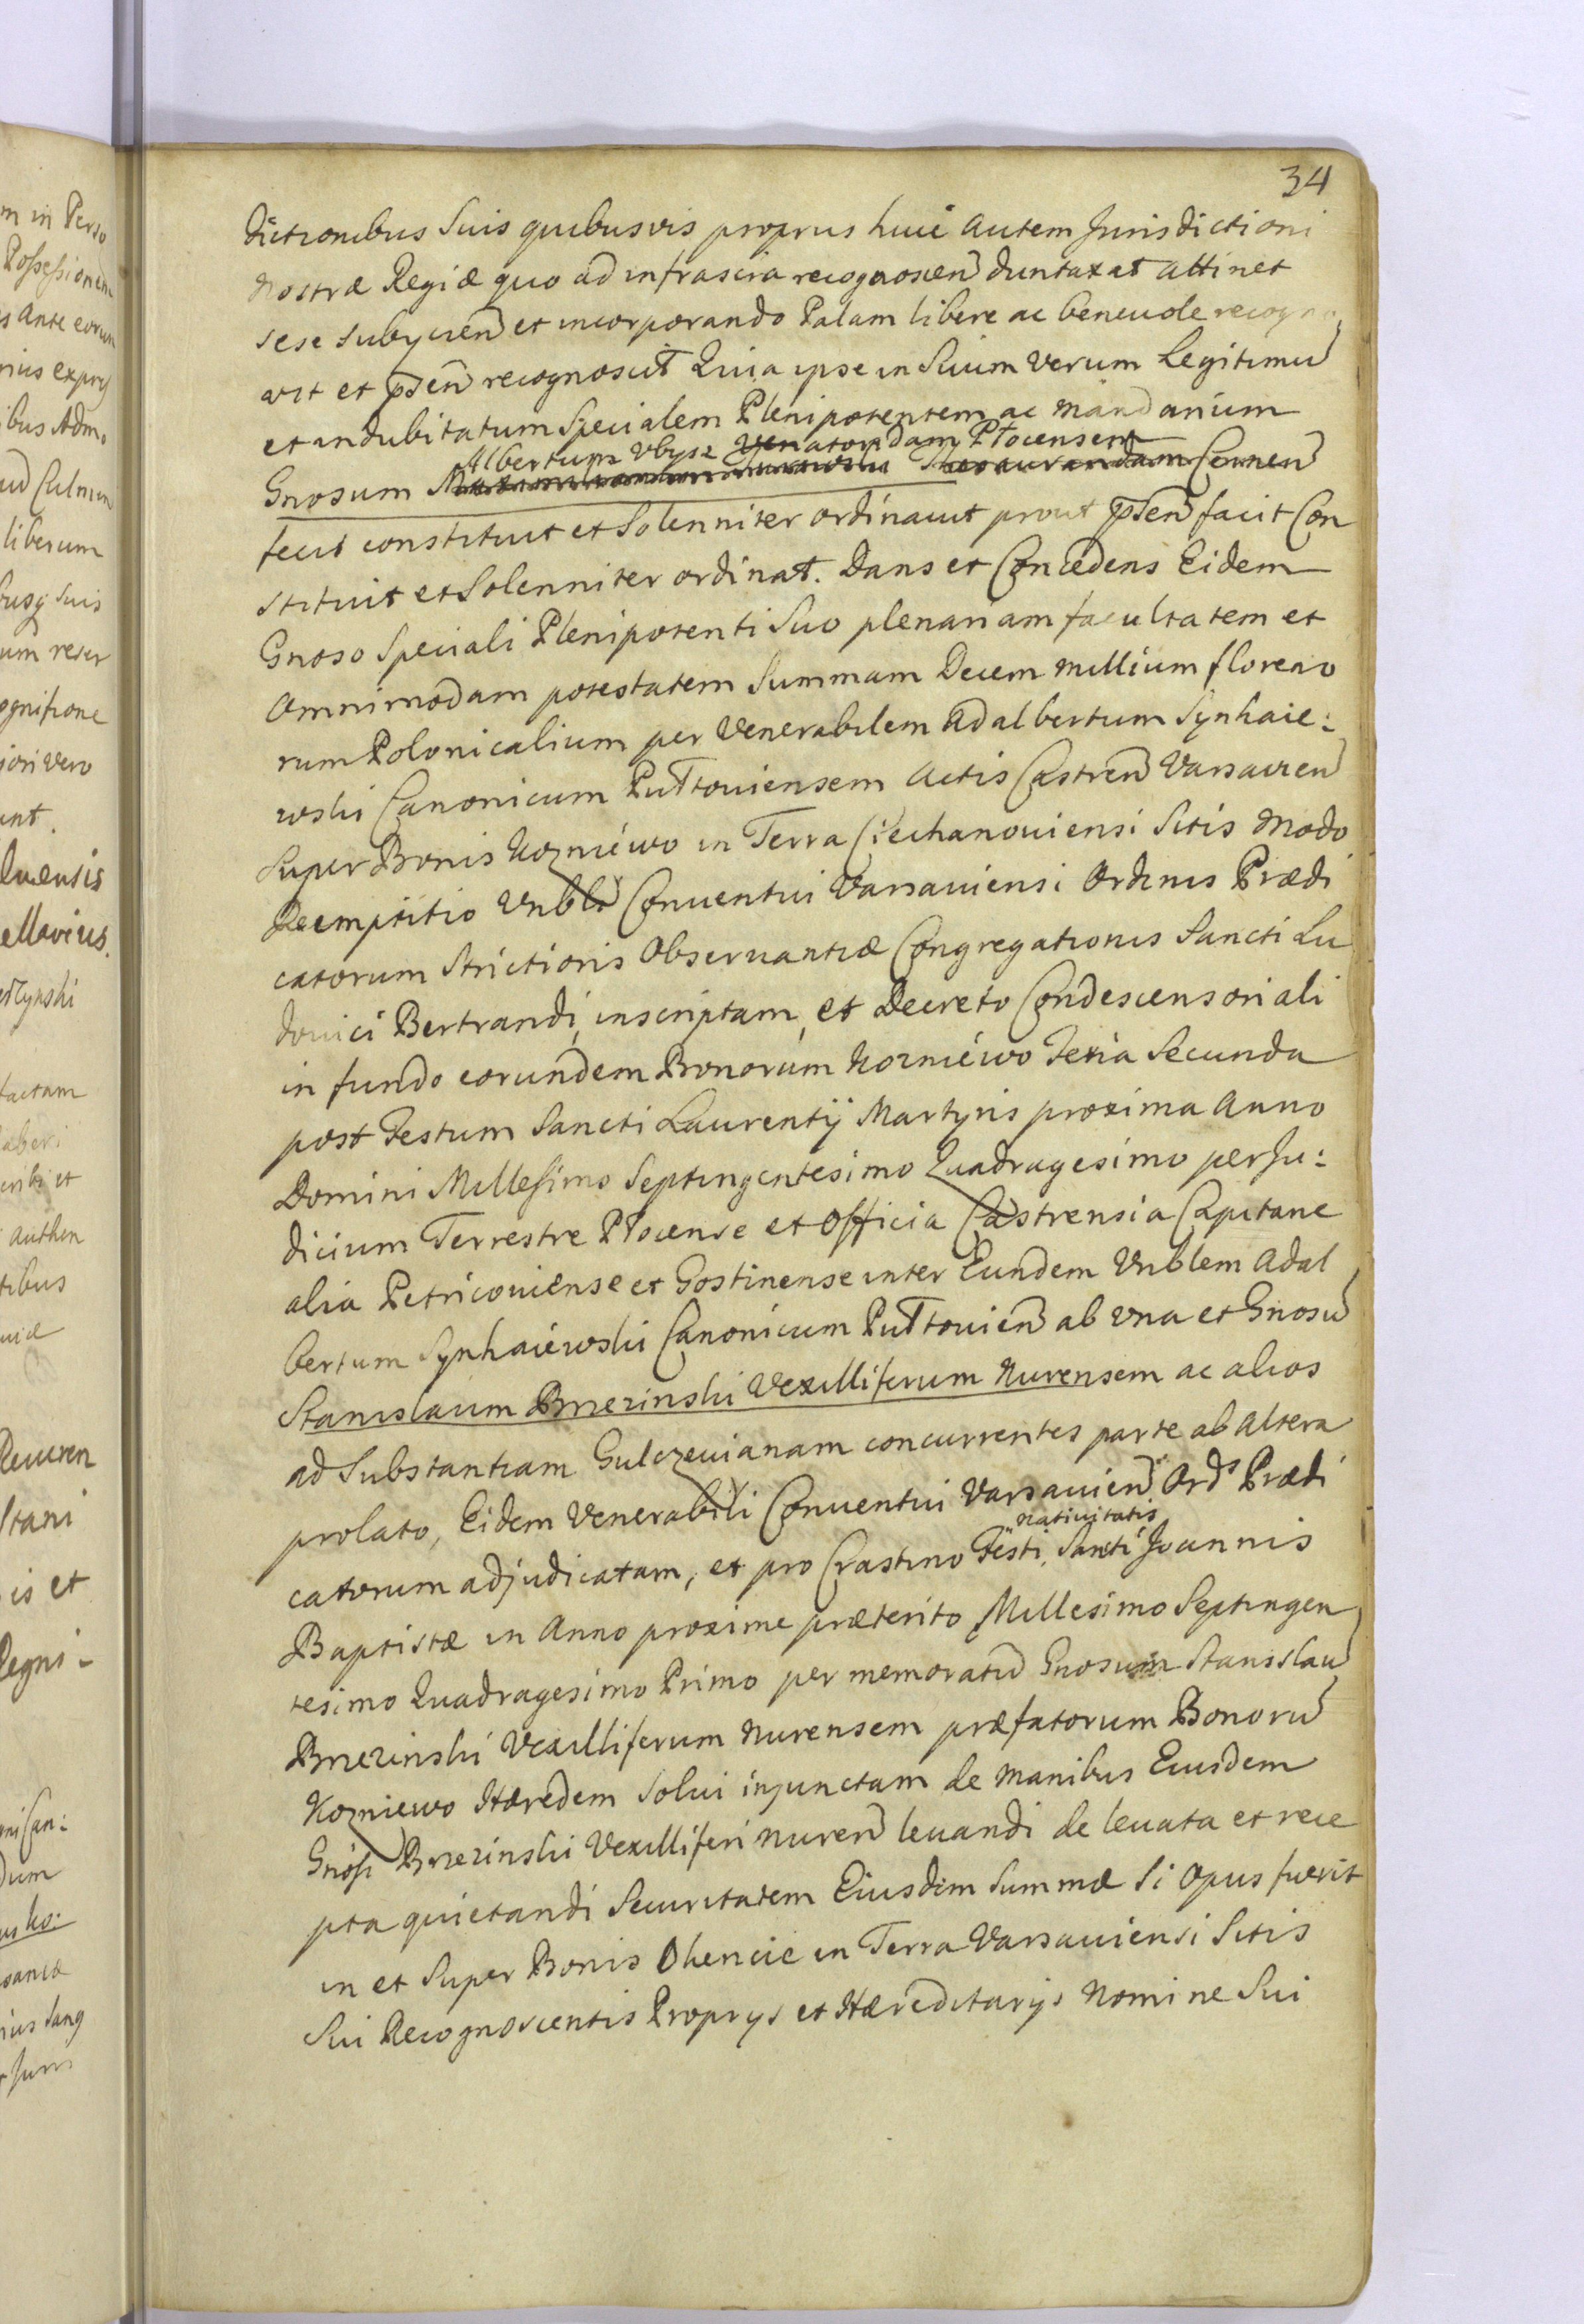 34
dictionibus Suis quibusvis propriis huic autem Jurisdictioni
Nostræ Regiæ quo ad infrascra recognoscen duntaxat attinet
sese subycien et incorporando Palam libere ac beneuole recogno
vit et pñsen recognoscit Quia ipse in Suum verum Legitimu
et indubitatum Specialem Plenipotentem ac Mandarium
Albertum Ubysz Venatoridam Płocensem
Gnosum
fecit constituit et Solenniter ordinauit prout pñsen facit Con
stituit et Solenniter ordinat. Dans et Concedens Eidem
Gnoso Speciali Plenipotenti Suo plenariam facultatem et
Omnimodam potestatem Summam Decem Millium floreno
rum Polonicalium per Venerabilem Adalbertum Synhaie:
wski Canonicum Pułtouiensem Actis Castren Varsauien
Super Bonis Kozniewo in Terra Ciechanouiensi Sitis Modo
Reemptitio Vnbli Conuentui Varsauiensi Ordinis Prædi
catorum Strictioris Obseruantiæ Congregationis Sancti Lu
douici Bertrandi, inscriptam, et Decreto Condescensoriali
in fundo eorundem Bonorum Kozniewo Feria Secunda
post Festum Sancti Laurentij Martyris proxima Anno
Domini Millesimo Septingentesimo Quadragesimo per Ju:
dicium Terrestre Płocense et Officia Castrensia Capitane
alia Petricouiense et Gostinense inter Eundem Vnblem Adal
bertum Synhaiewski Canonicum Pułtouien ab vna et Gnosu
Stanislaum Brzezinski Vexilliferum Nurensem ac alios
ad Substantiam Gulczeuianam concurrentes parte ab altera
prolato, Eidem Venerabili Conuentui Varsauien Ords Prædi
natiuitatis
catorum adjudicatam, et pro Crastino Festi Sancti Joannis
Baptistæ in Anno proxime præterito Millesimo Septingen
tesimo Quadragesimo Primo per memoratu Gnosum Stanislau
Brzezinski Vexilliferum Nurensem præfatorum Bonoru
Kozniewo Hæredem Solui injunctam de Manibus Eiusdem
Gnosi Brzezinski Vexilliferi Nuren leuandi de leuata et rece
pta quietandi Securitatem Eiusdem Summæ Si Opus fuerit
in et Super Bonis Okencie in Terra Varsauiensi Sitis
Sui Recognoscentis Proprys et Hæreditarijs Nomine Sui